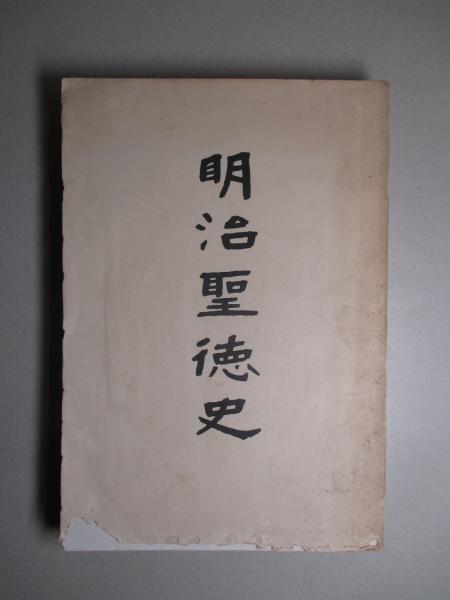 明治聖徳史